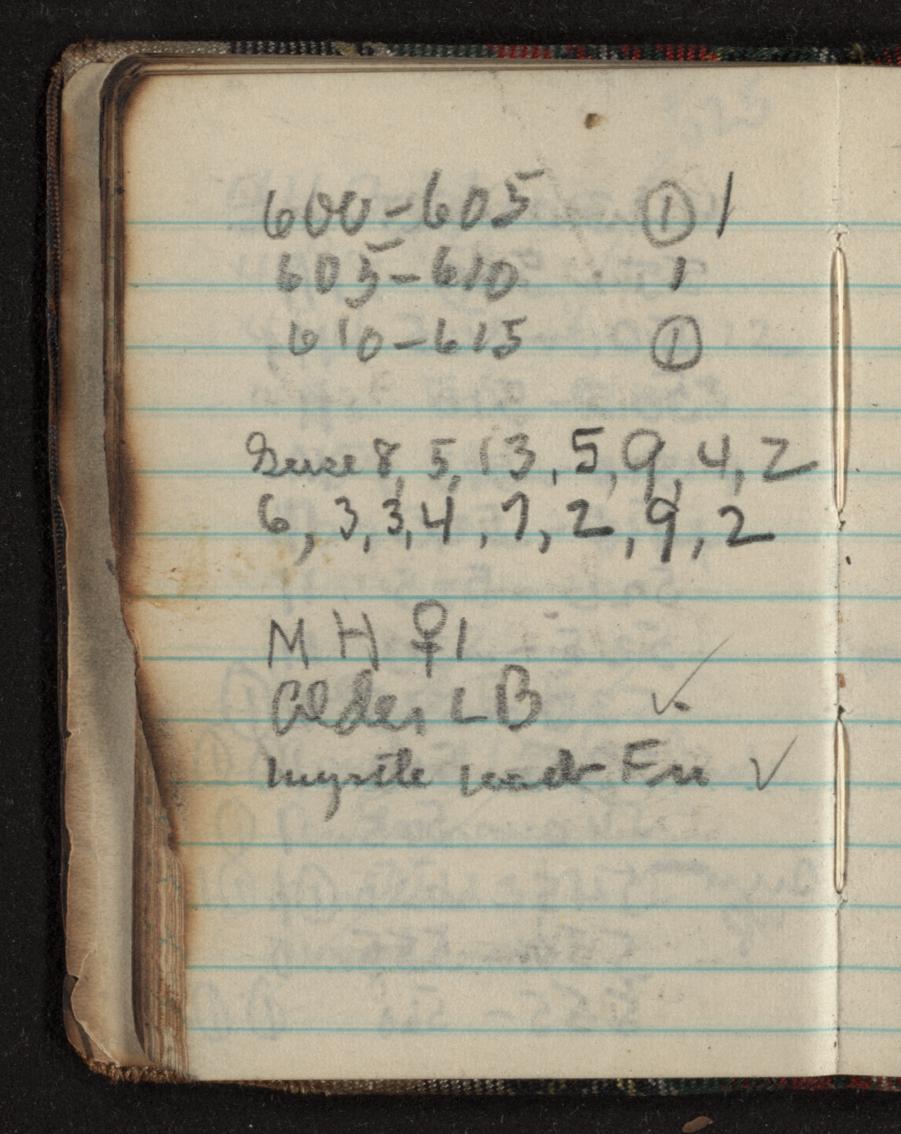 600-605 ① 1
605-610 1
610-615 ①
Geese 8, 5, 13, 5, 9, 4, 2
6, 3, 3, 4, 7, 2, 9, 2
M H ♀ 1
Alder LB ✓
Myrtle ✓